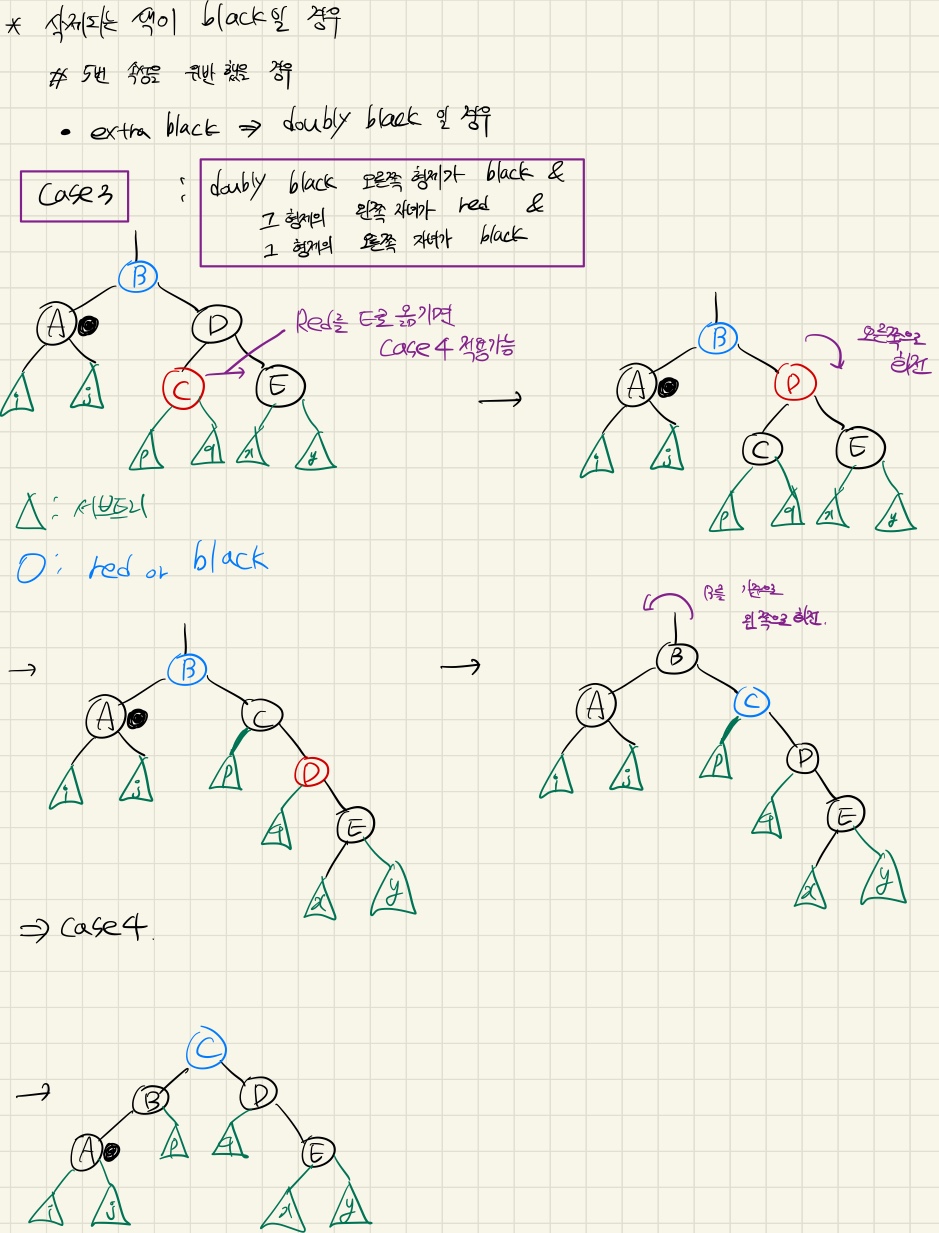 * 삭제되는 색이 black일 경우
# 5번 속성을 위반 했을 경우
• extra black ⇒ doubly black 일 경우
Case3 : doubly black 오른쪽 형제가 black &
그 형제의 왼쪽 자녀가 red &
그 형제의 오른쪽 자녀가 black
B
A D
Red를 E로 옮기면
Case 4 적용가능
C E
i j
p q x y
→
B
오른쪽으로
회전
A D
C E
i j
p q x y
△ : 서브트리
O : red or black
→
B
A C
i j p D
q E
x y
→
B를 기준으로
왼쪽으로 회전.
B
A C
i j p D
q E
x y
⇒ Case4.
→
C
B D
A p q E
i j x y